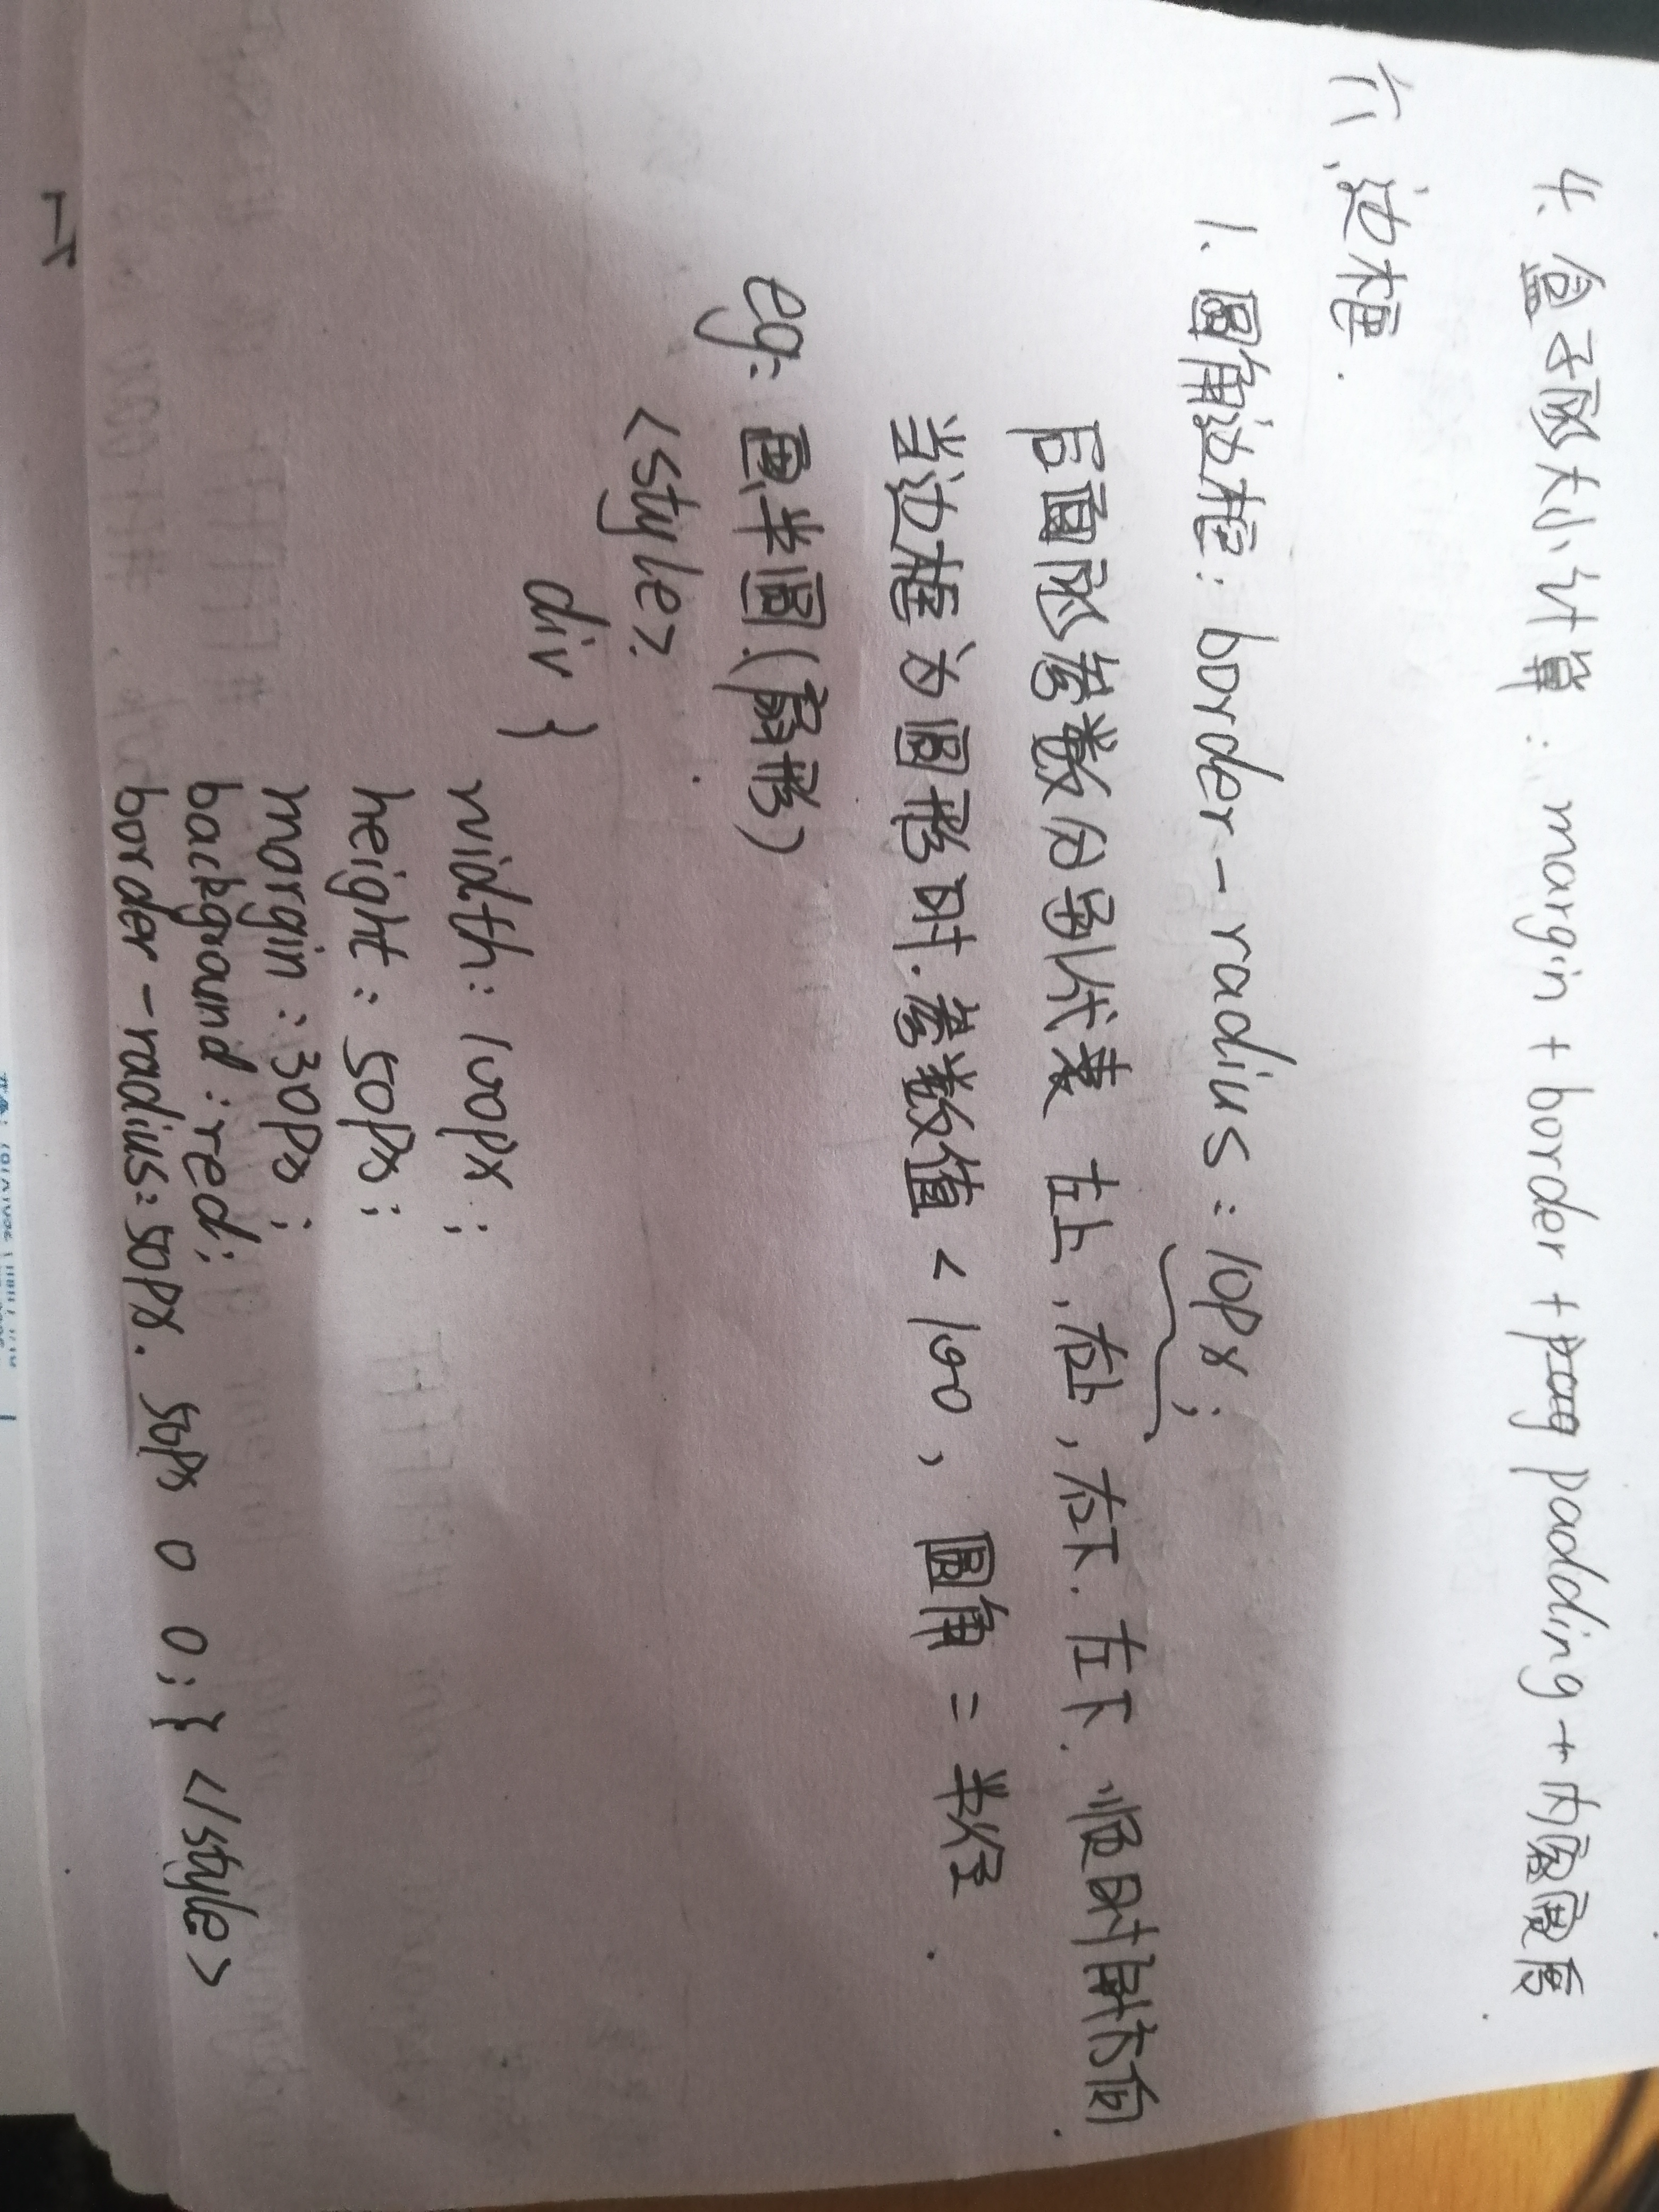 4、盒子的大小计算：margin + border + padding + 内容宽高
六、边框.
1. 圆角边框：border-radius：10px；
后面的参数分别代表 左上，右上，右下，左下. 顺时针方向
当边框为圆形时. 参数值 < 100，圆角 = 半径
eg：画半圆(扇形)
<style>
div }
width：100px；
height：50px；
margin：30px；
background：red；
border-radius：50px. 50px 0 0；} </style>